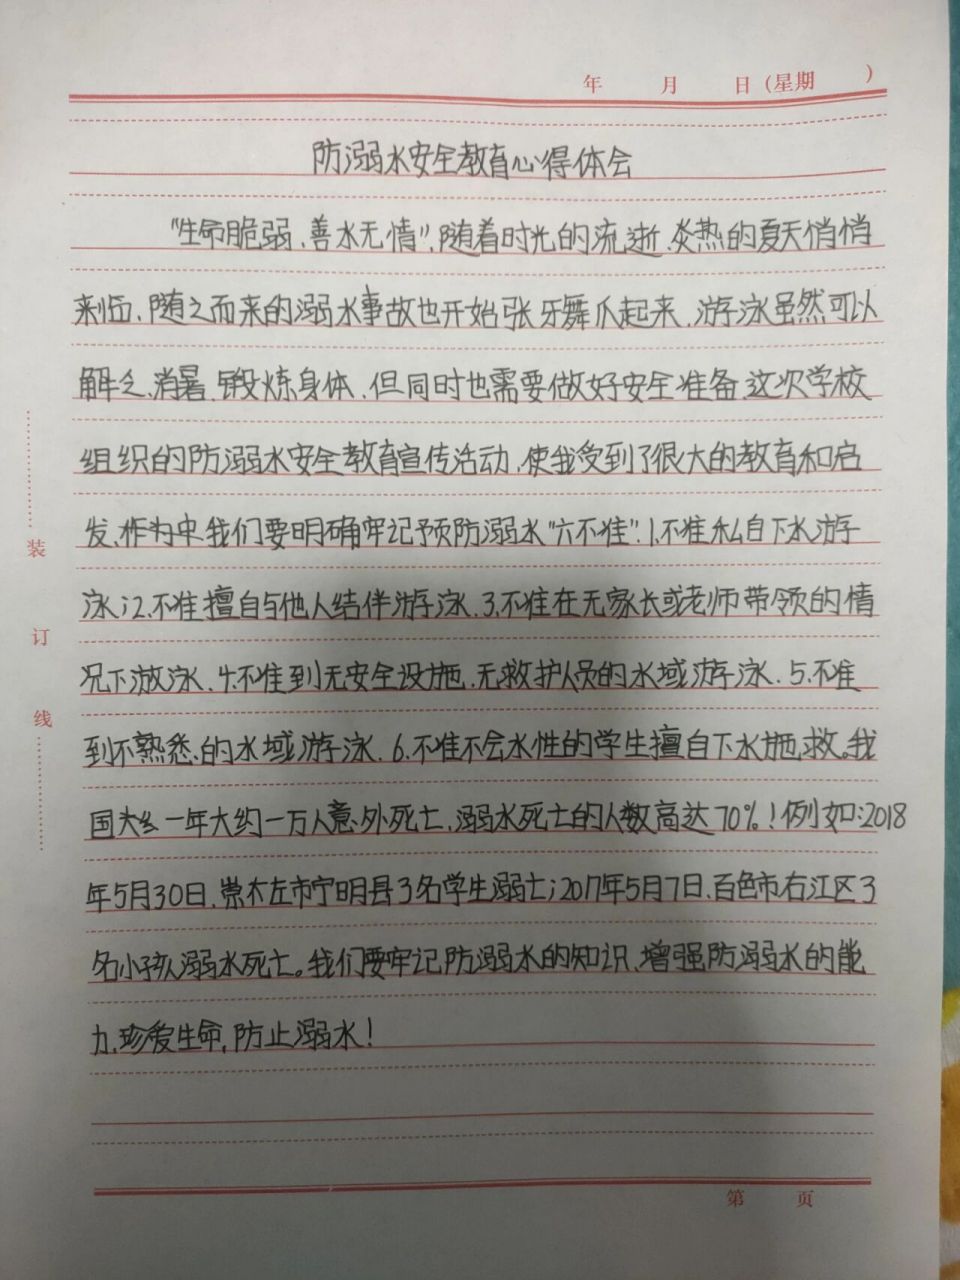 年 月 日（星期 ）
防溺水安全教育心得体会
"生命脆弱、善水无情",随着时光的流逝,炎热的夏天悄悄
来临、随之而来的溺水事故也开始张牙舞爪起来,游泳虽然可以
解乏、消暑、锻炼身体、但同时也需要做好安全准备,这次学校
组织的防溺水安全教育宣传活动,使我受到了很大的教育和启
发、作为中,我们要明确牢记预防溺水"六不准":1.不准私自下水游
泳;2.不准擅自与他人结伴游泳.3.不准在无家长或老师带领的情
况下游泳.4.不准到无安全设施、无救护人员的水域游泳.5.不准
到不熟悉的水域游泳.6.不准不会水性的学生擅自下水施救。我
国大约一年大约一万人意外死亡,溺水死亡的人数高达70%!例如:2018
年5月30日,崇左市宁明县3名学生溺亡;2017年5月7日,百色市右江区3
名小孩溺水死亡。我们要牢记防溺水的知识、增强防溺水的能
力,珍爱生命,防止溺水!
第 页
装
订
线